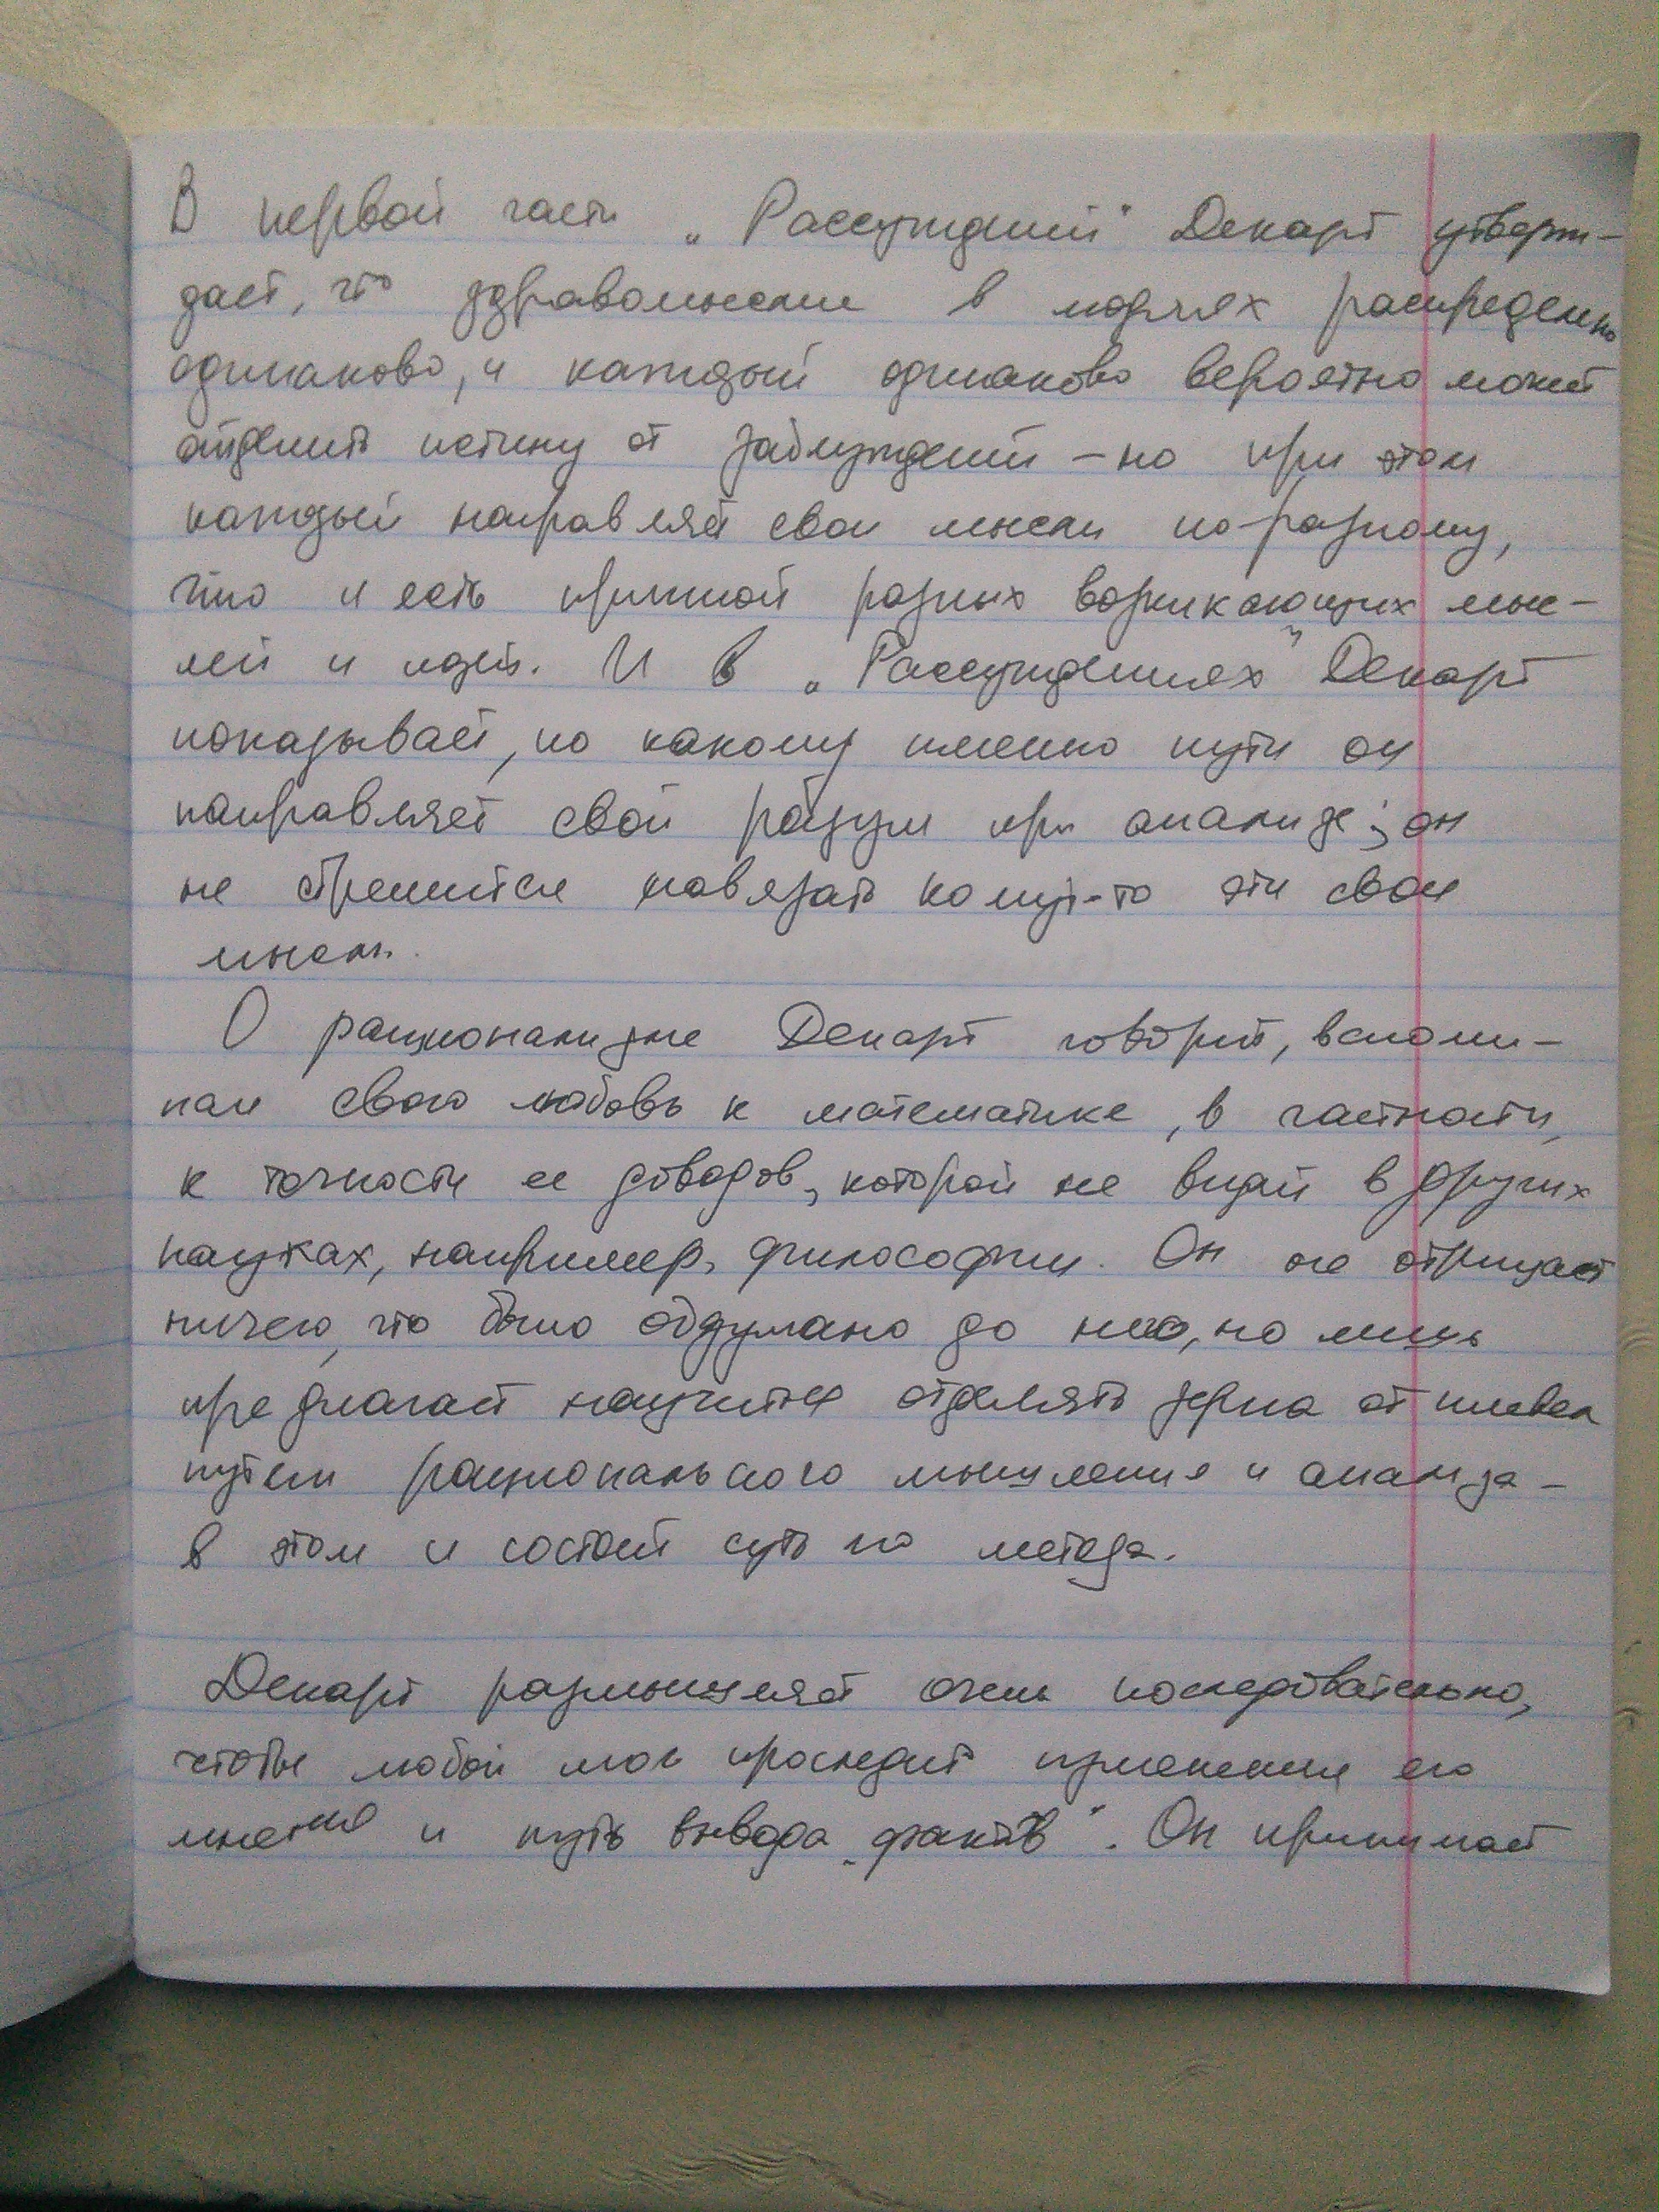 В первой части „Рассуждений" Декарт утверж-
дает, что здравомыслие в людях распределено
одинаково, и каждый одинаково вероятно может
отделить истину от заблуждений – но при этом
каждый направляет свои мысли по-разному,
что и есть причиной разных возникающих мыс-
лей и идей. И в „Рассуждениях" Декарт
показывает, по какому именно пути он
направляет свой разум при анализе; он
не стремится навязать кому-то эти свои
мысли.
О рационализме Декарт говорит, вспоми-
ная свою любовь к математике, в частности,
к точности ее доводов, которой не видит в других
науках, например, философии. Он не отрицает
ничего, что было обдумано до него, но лишь
предлагает научиться отделять зерна от плевел
путем рационального мышления и анализа –
в этом и состоит суть его метода.
Декарт размышляет очень последовательно,
чтобы любой мог проследить изменения его
мнения и путь вывода „фактов". Он принимает